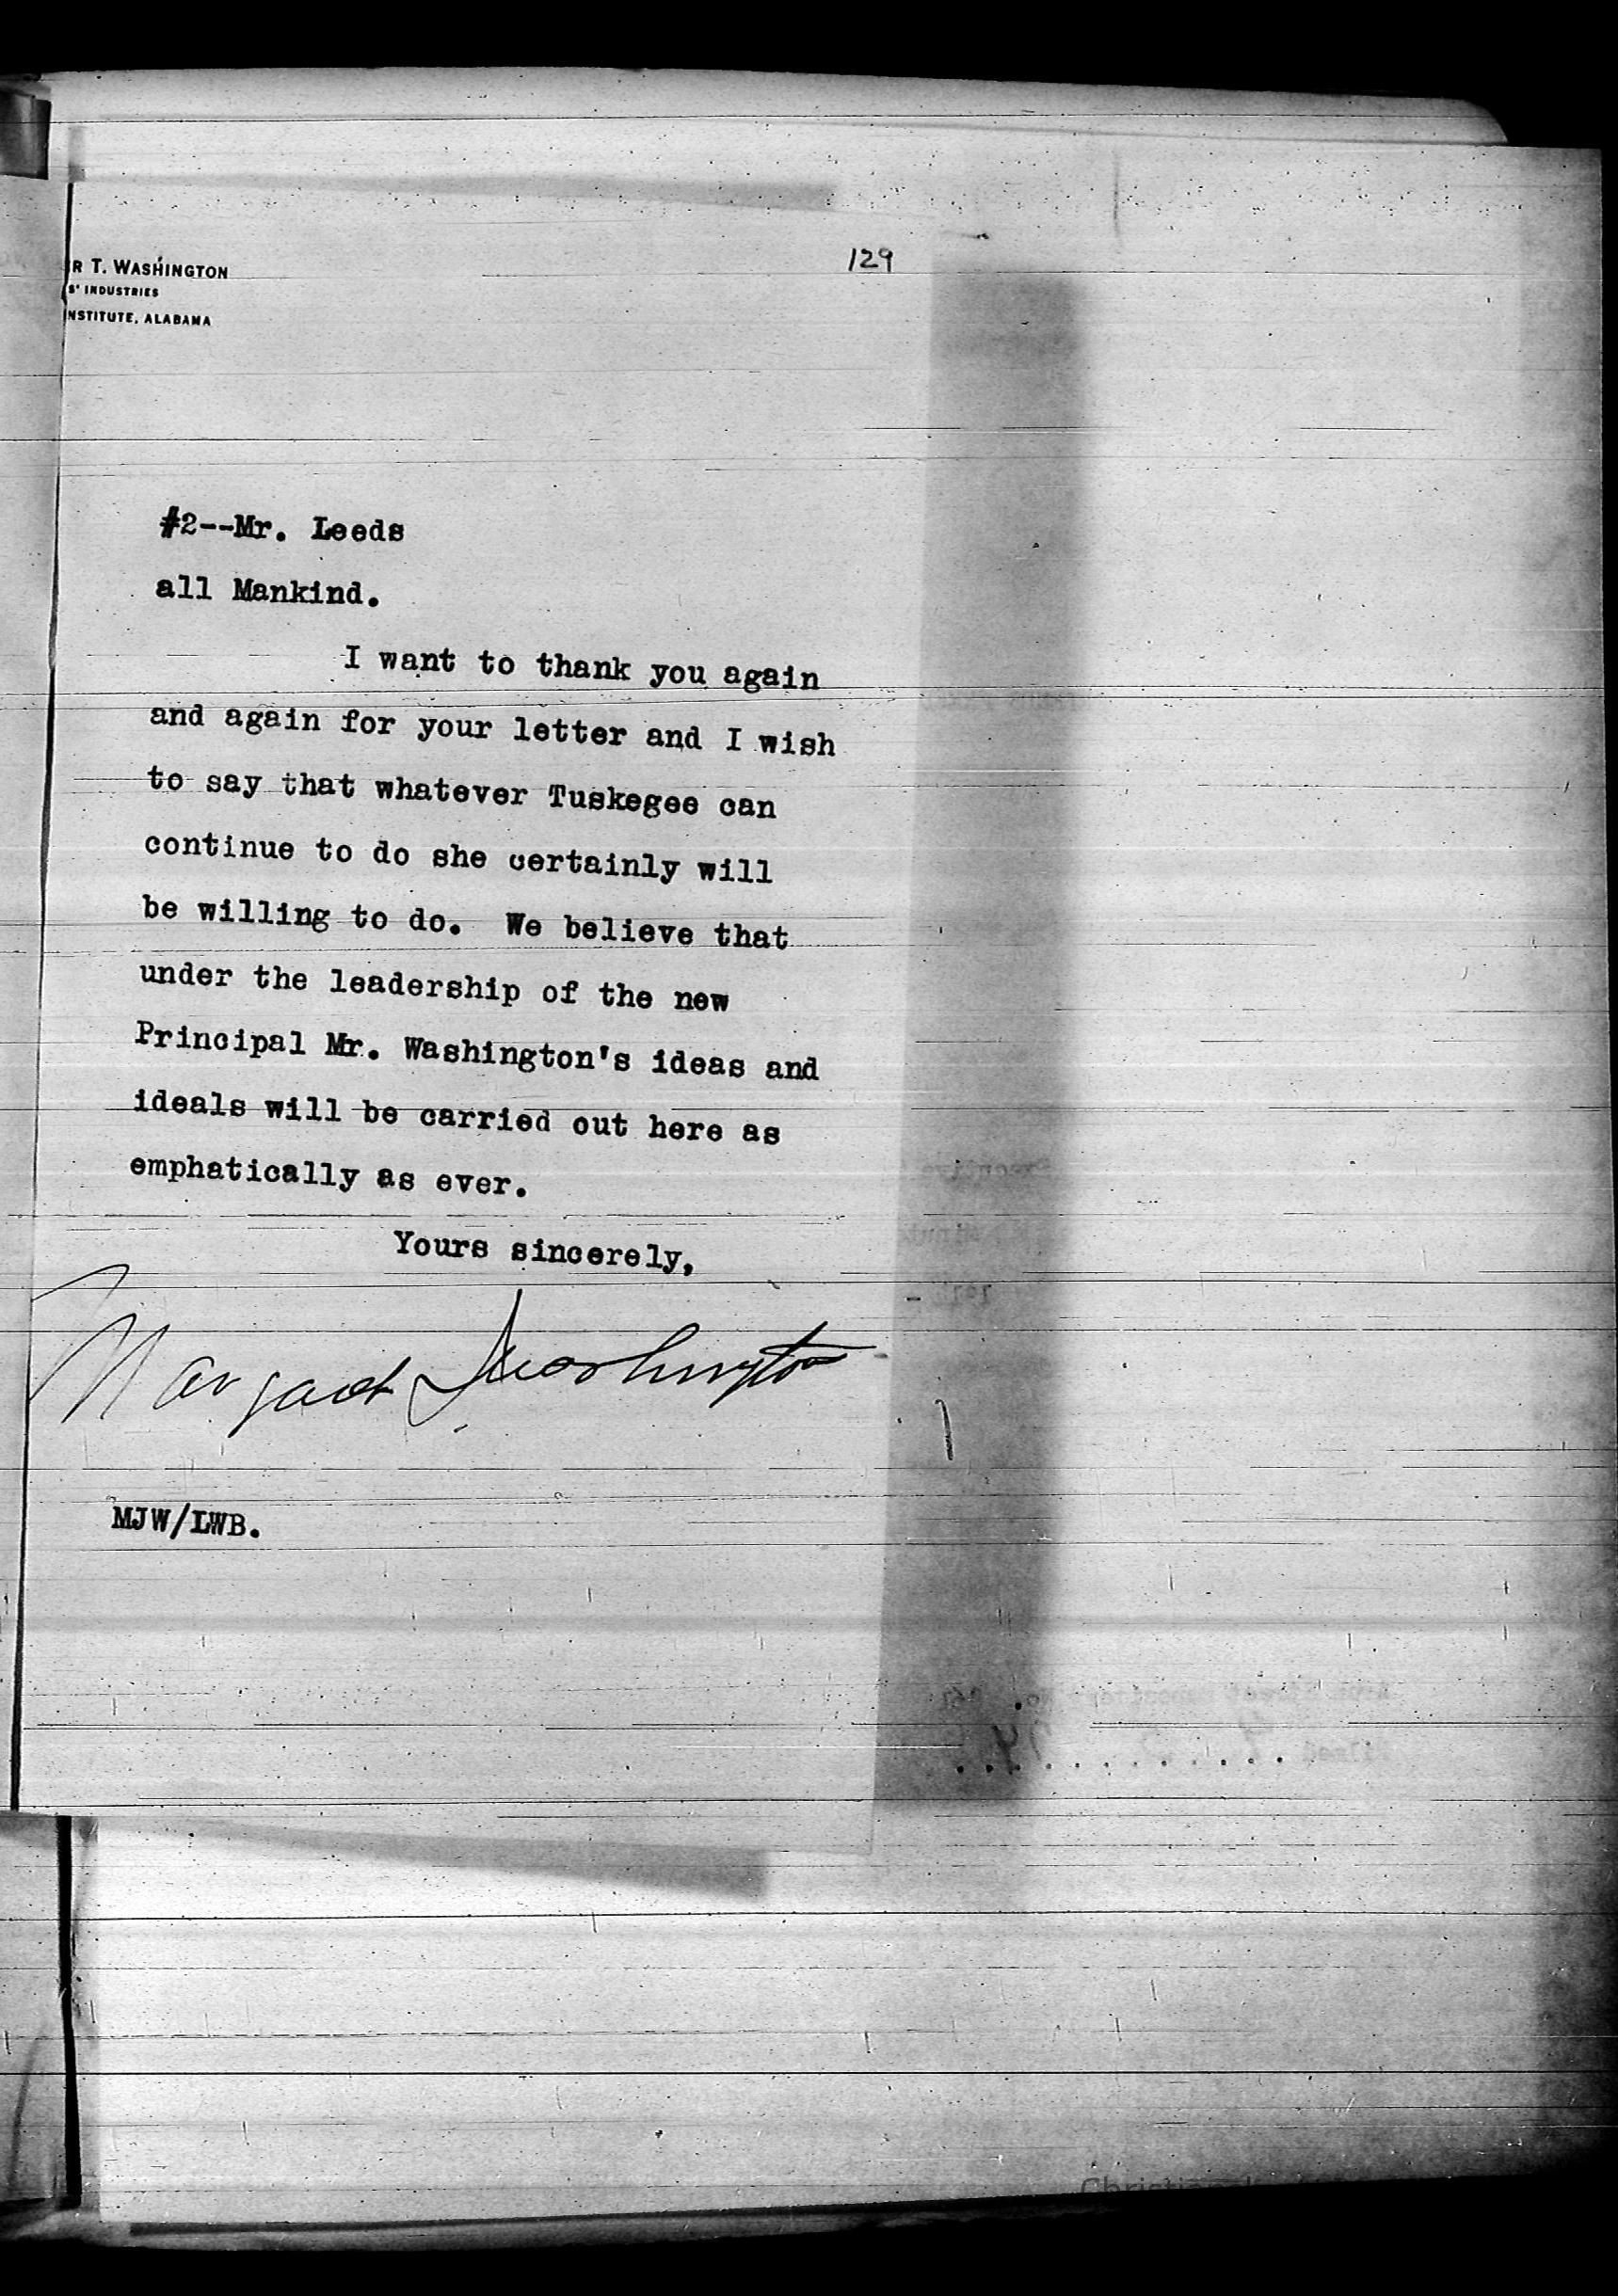 R T. WASHINGTON
S' INDUSTRIES
NSTITUTE, ALABAMA
129
#2--Mr. Leeds
all Mankind.
I want to thank you again
and again for your letter and I wish
to say that whatever Tuskegee can
continue to do she certainly will
be willing to do. We believe that
under the leadership of the new
Principal Mr. Washington's ideas and
ideals will be carried out here as
emphatically as ever.
Yours sincerely,
Margaret J Washington
MJW/LWB.